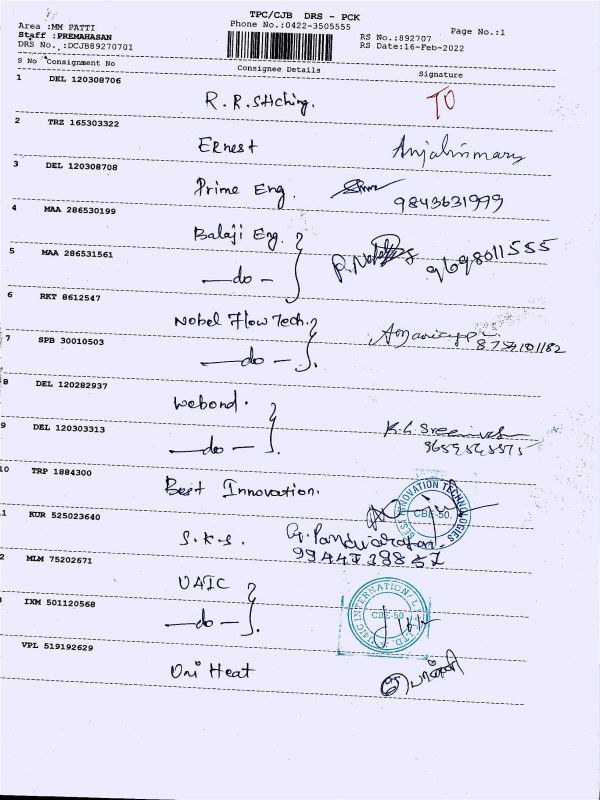 TPC/CJB DRS - PCK
Area :MM PATTI
Phone No.:0422-3505555
Page No.:1
Staff :PREMAHASAN
RS No.:892707
DRS No.:DCJB89270701
RS Date:16-Feb-2022
S No Consignment No Consignee Details Signature
1 DEL 120308706
R.R.Stching. TO
2 TRZ 165303322
Ernest Anjalinmary
3 DEL 120308708
Prime Eng.
9843631999
4 MAA 286530199
Balaji Eng.
5 MAA 286531561
9698011555
—do—
6 RKT 8612547
Nobel Flow Tech.
7 SPB 30010503
—do—
8 DEL 120282937
Webond.
9 DEL 120303313
—do—
10 TRP 1884300
Best Innovation.
BEST INNOVATION TECHNOLOGIES
CBE-50.
1 KUR 525023640
S.K.S.
2 MLM 75202671
UAIC
IXM 501120568
CBE-50
—do—
VPL 519192629
Uni Heat